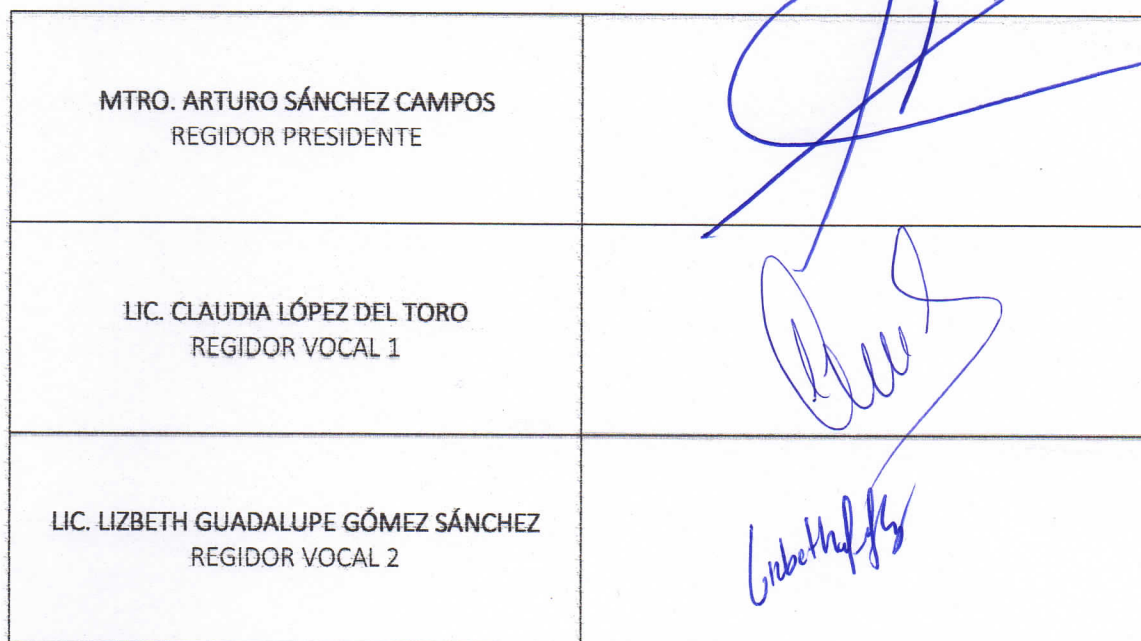 MTRO. ARTURO SÁNCHEZ CAMPOS
REGIDOR PRESIDENTE
LIC. CLAUDIA LÓPEZ DEL TORO
REGIDOR VOCAL 1
LIC. LIZBETH GUADALUPE GÓMEZ SÁNCHEZ
REGIDOR VOCAL 2